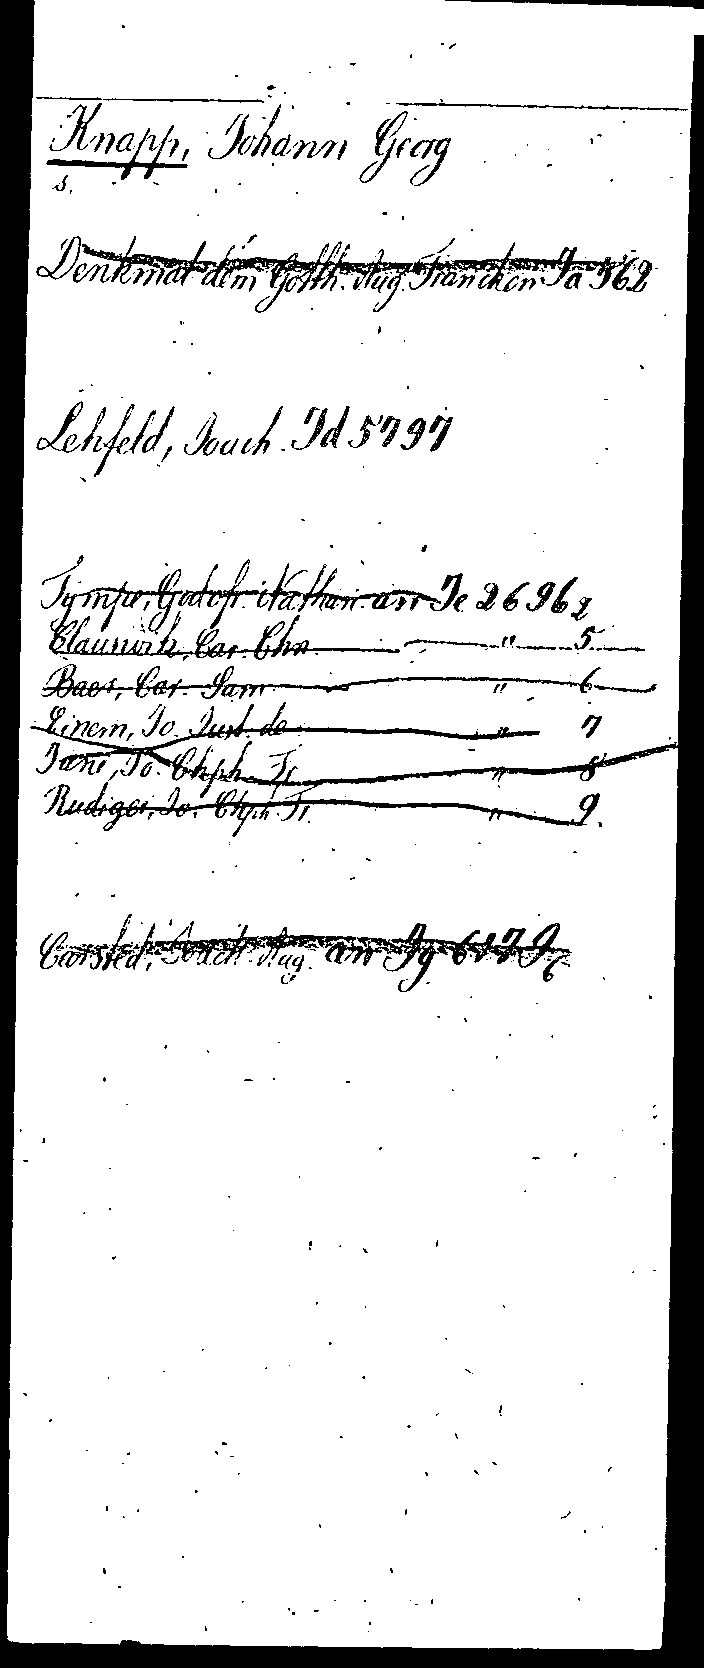 Knapp, Johann Georg
s.
Denkmal dem Gotth. Aug. Francken Ja 562
Lehfeld, Joach. Jd 5797
Tympe, Godofr. Nathan. an Je 26962
Clauswih, Car. Chn " 5
Baer, Car. Sam " 6
Einem, Jo. Just. de " 7
Jani, Jo. Chph. Fr. " 8
Rudiger, Jo. Chph. Fr. " 9.
Carsted, Joach. Aug. an Jg